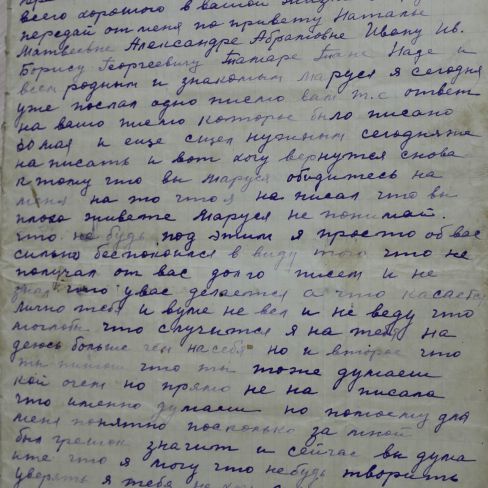 всего хорошого в вашой
передай от меня по привету Наталье
Матвеевне Александре Абрамовне Ивану Ив.
Борису Георгеевичу Тамаре Тане Наде и
всем родным и знакомым Маруся я сегодня
уже послал одно писмо вам т.с ответ
на вашо писмо которое было писано
мая и еще сщел нужным сегодня же
на писать и вот хочу вернутся снова
к тому что вы Маруся обидитесь на
меня на то что я на писал что вы
плохо живете Маруся не понимай.
что небудь под этим я просто об вас
сильно беспокоился в виду того что не
получал от вас долго писем и не
знал что у вас делается а что касается
лично тебя и в уме не вел и не веду что
могло что случится я на тебя на
деюсь больше чем на себя но и второе что
ты пишеш что ты тоже думаеш
кой очем но прямо не на писала
что именно думаеш но потоему для
меня понятно поскольку за мной
был грешок значит и сейчас вы дума
ите что я могу что небудь творить
уверять я тебя не